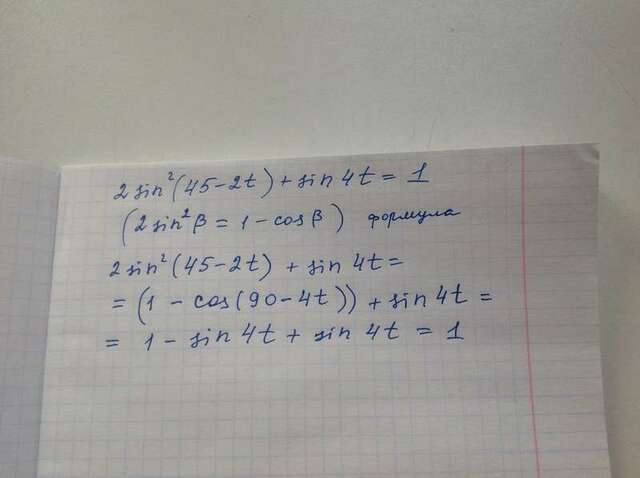 2 sin²(45-2t) + sin 4t = 1
(2 sin²β = 1 - cos β) формула
2 sin²(45-2t) + sin 4t =
= (1 - cos(90-4t)) + sin 4t =
= 1 - sin 4t + sin 4t = 1